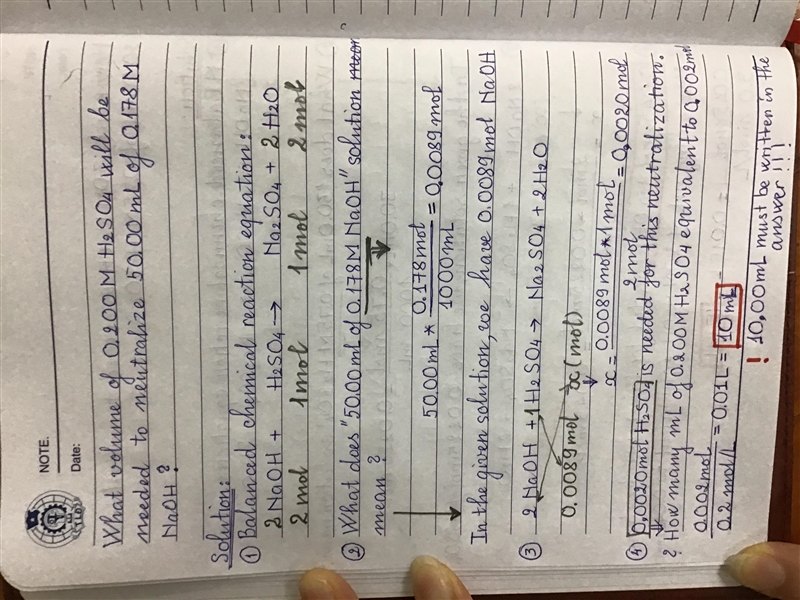 NOTE.
Date:
What volume of 0.200 M H2SO4 will be
needed to neutralize 50.00 mL of 0.178 M
NaOH?
Solution:
① Balanced chemical reaction equation:
2 NaOH + H2SO4 → Na2SO4 + 2 H2O
2 mol 1 mol 1 mol 2 mol
② What does "50.00 mL of 0.178M NaOH" solution
mean?
50.00 mL * 0.178 mol / 1000 mL = 0.0089 mol
In the given solution, we have 0.0089 mol NaOH
③ 2 NaOH + 1 H2SO4 → Na2SO4 + 2H2O
0.0089 mol x (mol)
x = 0.0089 mol * 1 mol / 2 mol = 0,0020 mol
④ 0,0020 mol H2SO4 is needed for this neutralization.
? How many mL of 0.200M H2SO4 equivalent to 0,002 mol
0.002 mol / 0.2 mol/L = 0.01L = 10 mL
! 10,00 mL must be written in the
answer!!!